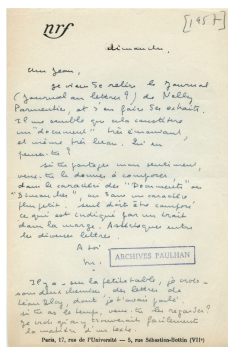 nrf
[1957]
dimanche.
Mon Jean,
Je viens de relire le Journal
(Journal ou lettres ?) de Nelly
Parmentier, et d'en faire des extraits.
Il me semble que cela constitue
un "document" très émouvant,
et même très beau. Qu'en
penses-tu ?
Si tu partages mon sentiment,
veux-tu le donner à composer
dans le caractère des "Documents" ou
"Dimanches", ou dans un caractère
plus petit. Seul doit être composé
ce qui est indiqué par un trait
dans la marge. Astérisques entre
les diverses lettres.
A toi
ARCHIVES PAULHAN
Il y a, sur la petite table, je crois,
une chemise des lettres de
dont je t'avais parlé.
Si tu as le temps, veux-tu les regarder ?
Je crois qu'on trouverait facilement
la matière d'un texte.
Paris, 17, rue de l'Université — 5, rue Sébastien-Bottin (VIIe)